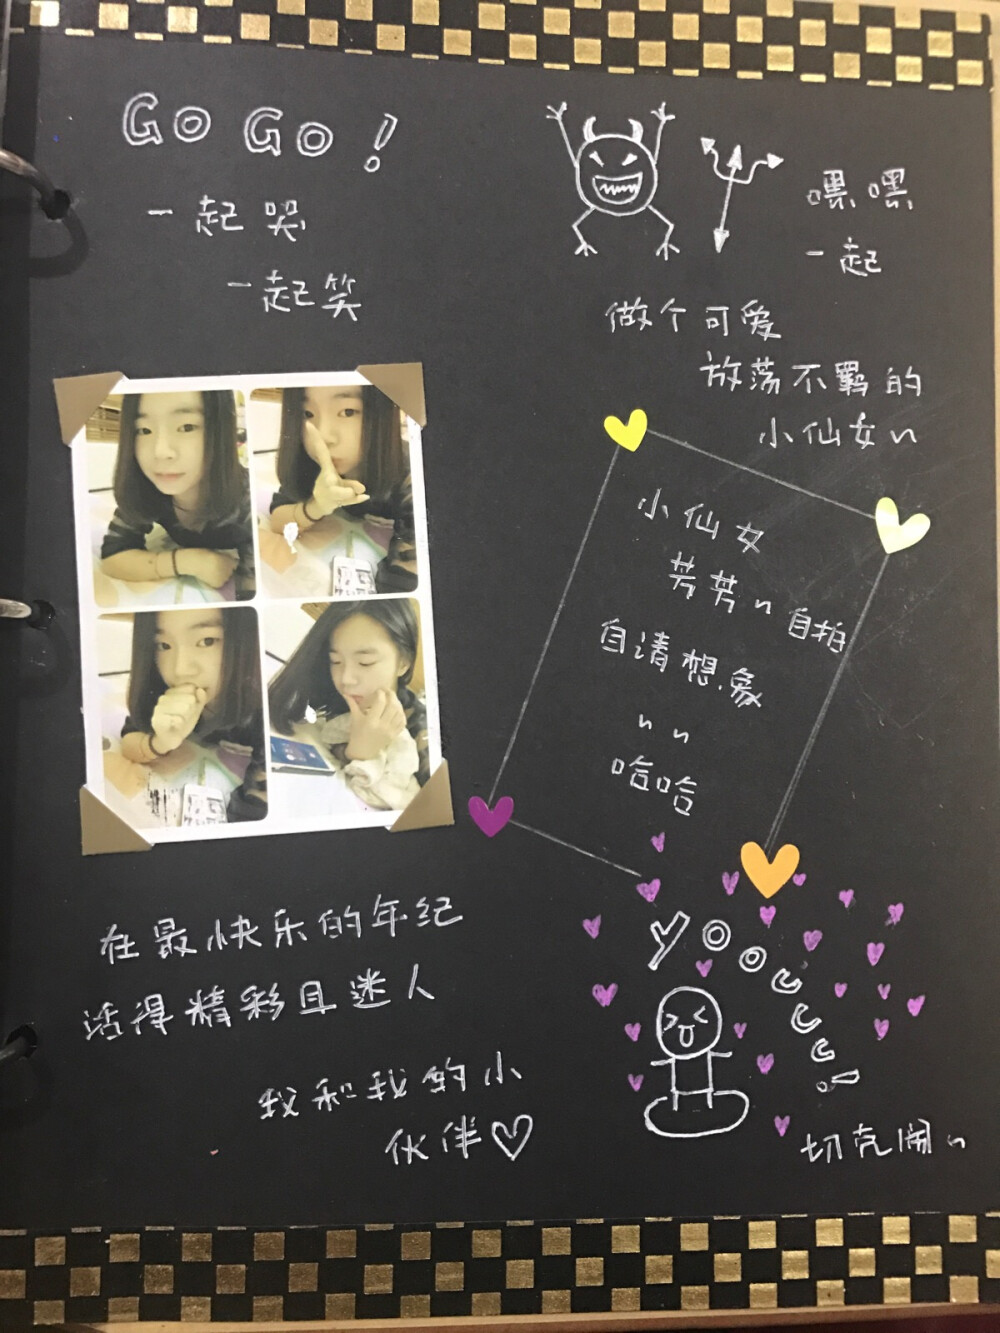 GO GO！
一起哭
一起笑
嘿嘿
一起
做个可爱
放荡不羁的
小仙女~
小仙女
芳芳~自拍
自请想象
~~
哈哈
在最快乐的年纪
活得精彩且迷人
我和我的小
伙伴♡
yooccc!
切克闹~